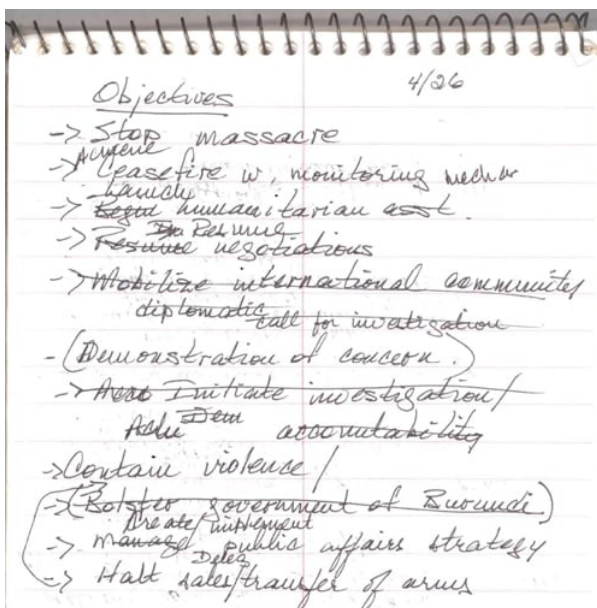 4/26
Objectives
-> Stop massacre
Achieve
-> Ceasefire w. monitoring mechan
Launch
-> Begin humanitarian asst.
Resume
-> Resume negotiations
-> Mobilize international community
diplomatic call for investigation
- (Demonstration of concern.)
-> Initiate investigation/
Dem accountability
-> Contain violence/
-> (Bolster government of Burundi)
Create/implement
-> Manage public affairs strategy
-> Halt sales/transfer of arms